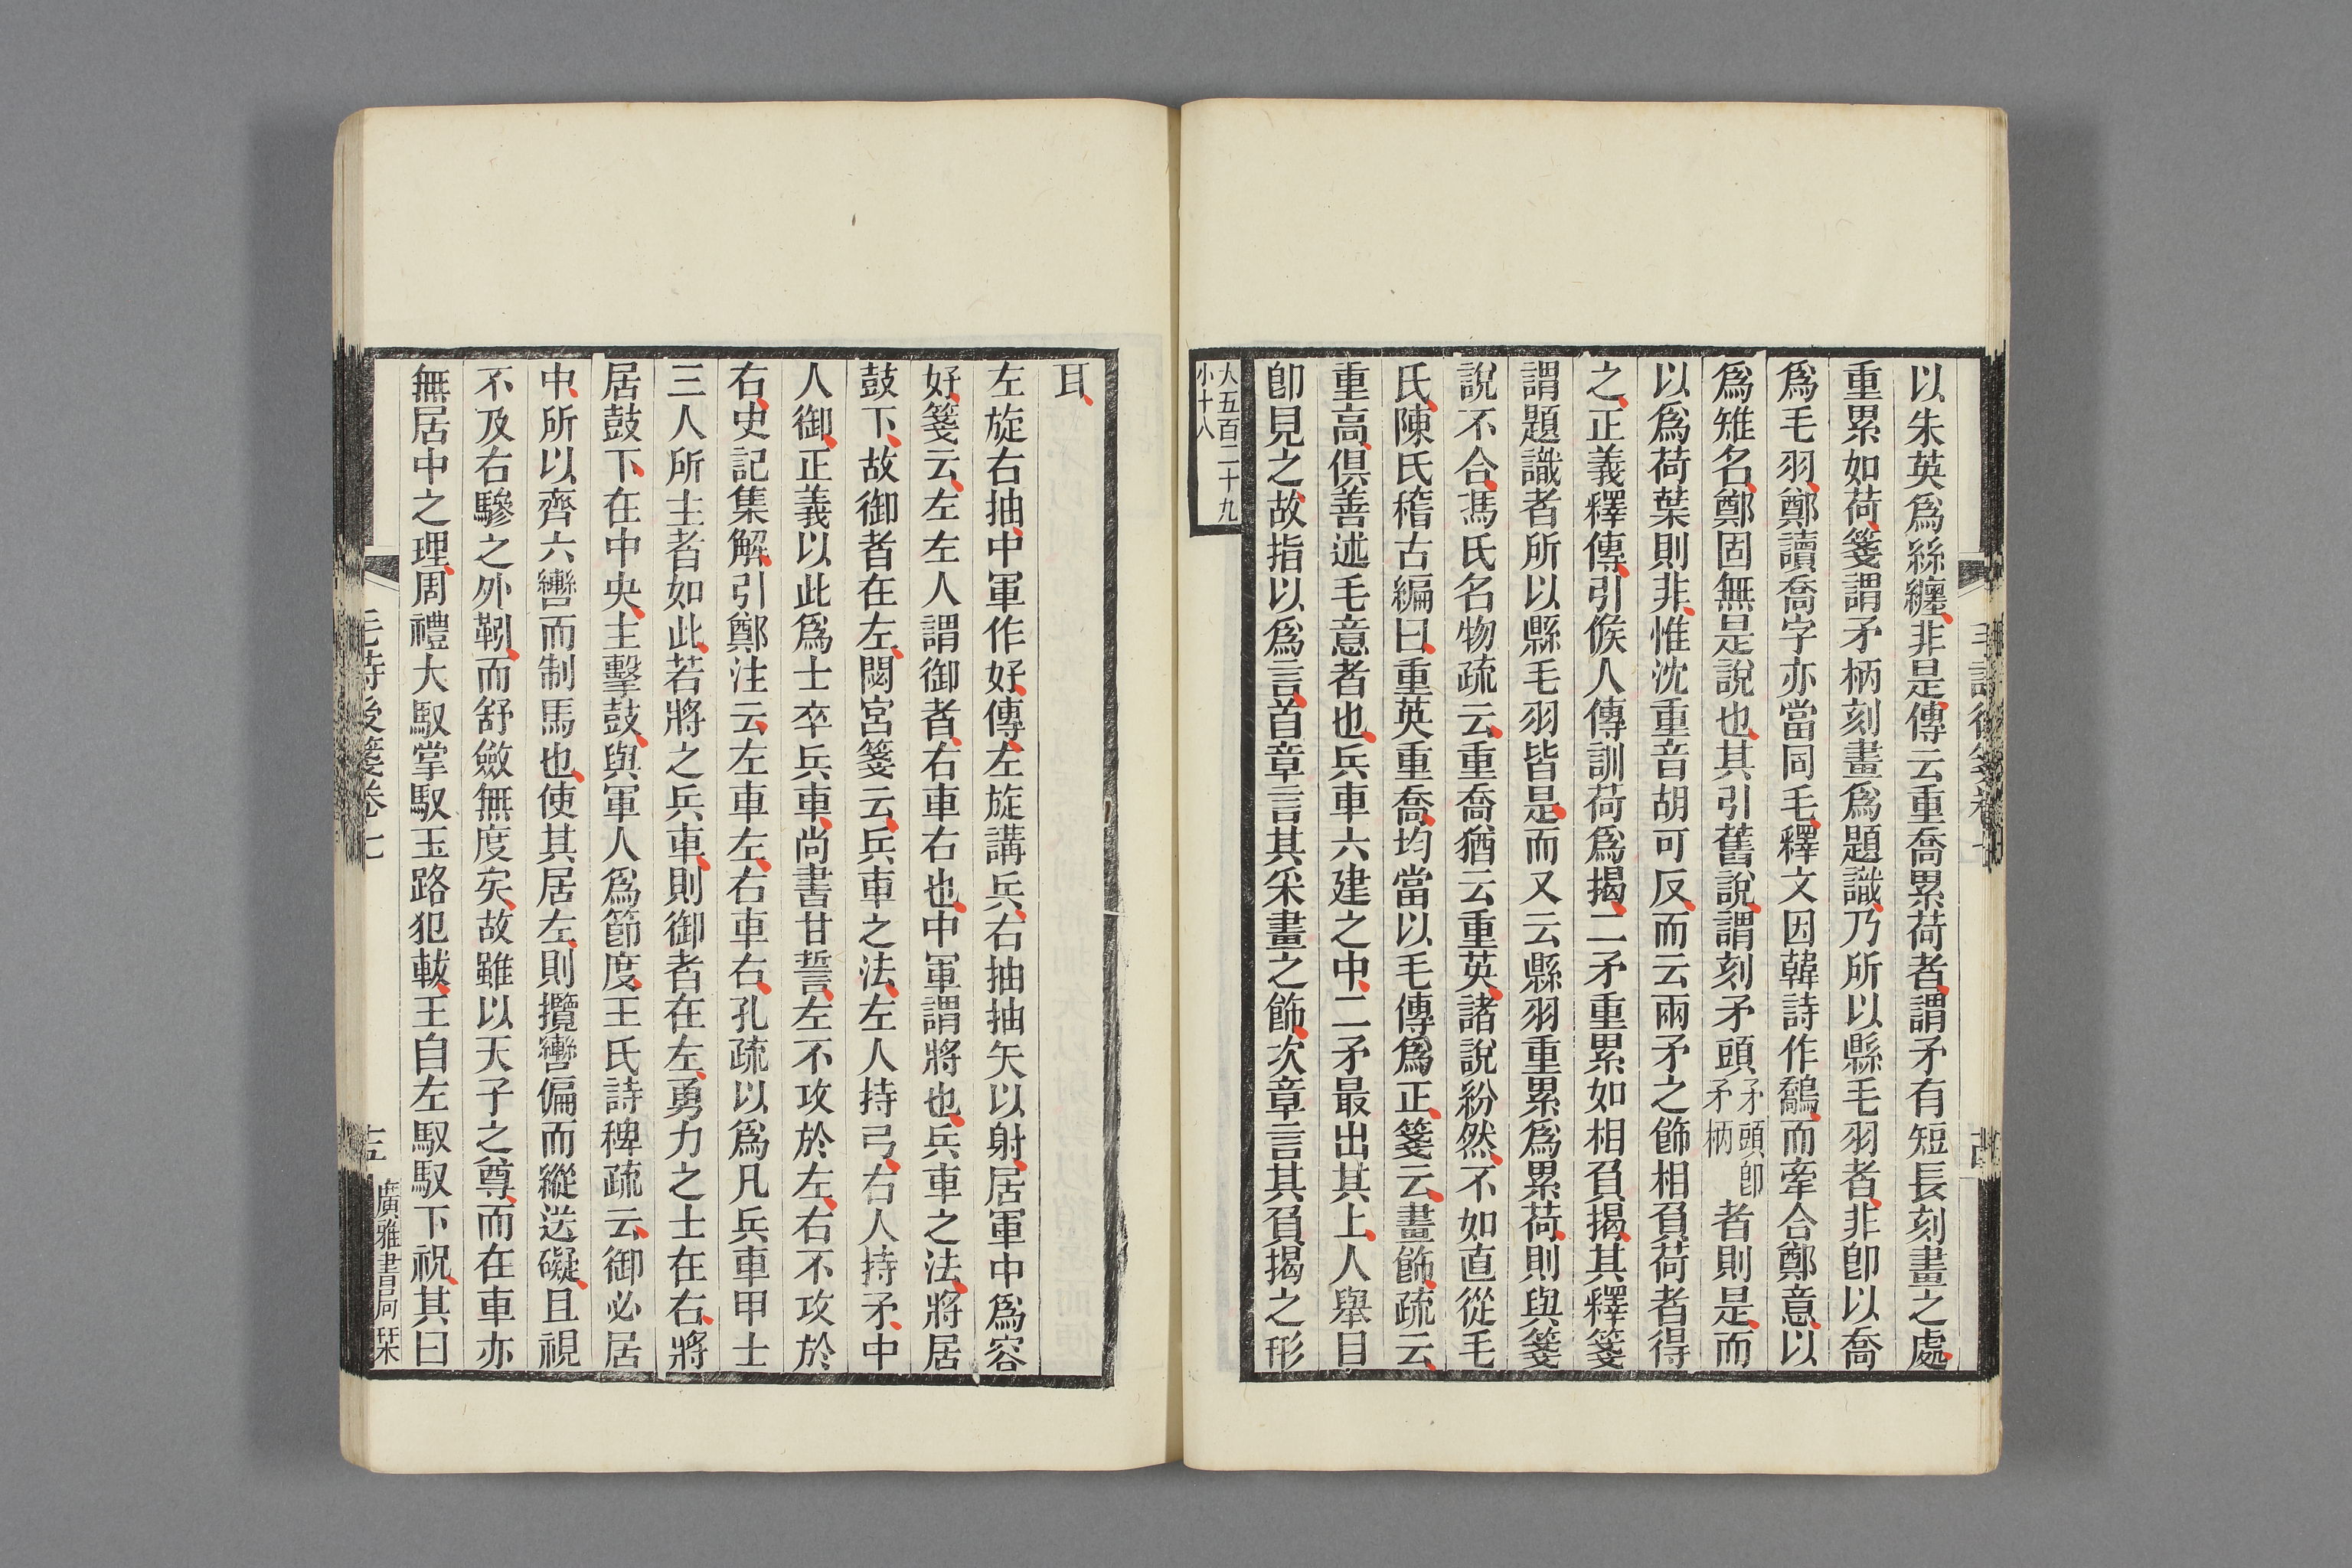 以朱英爲絲纏非是傳云重喬累荷者謂矛有短長刻畫之處
重累如荷箋謂矛柄刻畫爲題識乃所以縣毛羽者非卽以喬
爲毛羽鄭讀喬字亦當同毛釋文因韓詩作鷮而牽合鄭意以
爲雉名鄭固無是說也其引舊說謂刻矛頭矛頭卽矛柄者則是而
以爲荷葉則非惟沈重音胡可反而云兩矛之飾相負荷者得
之正義釋傳引候人傳訓荷爲揭二矛重累如相負揭其釋箋
謂題識者所以縣毛羽皆是而又云縣羽重累爲累荷則與箋
說不合馮氏名物疏云重喬猶云重英諸說紛然不如直從毛
氏陳氏稽古編曰重英重喬均當以毛傳爲正箋云畫飾疏云
重高俱善述毛意者也兵車六建之中二矛最出其上人舉目
卽見之故指以爲言首章言其采畫之飾次章言其負揭之形
大五百二十九
小十八
耳
左旋右抽中軍作好傳左旋講兵右抽抽矢以射居軍中爲容
好箋云左左人謂御者右車右也中軍謂將也兵車之法將居
鼓下故御者在左閟宮箋云兵車之法左人持弓右人持矛中
人御正義以此爲士卒兵車尚書甘誓左不攻於左右不攻於
右史記集解引鄭注云左車左右車右孔疏以爲凡兵車甲士
三人所主者如此若將之兵車則御者在左勇力之士在右將
居鼓下在中央主擊鼓與軍人爲節度王氏詩稗疏云御必居
中所以齊六轡而制馬也使其居左則攬轡偏而縱送礙且視
不及右驂之外靷而舒斂無度矣故雖以天子之尊而在車亦
無居中之理周禮大馭掌馭玉路犯軷王自左馭馭下祝其曰
毛詩後箋卷七
廣雅書局栞